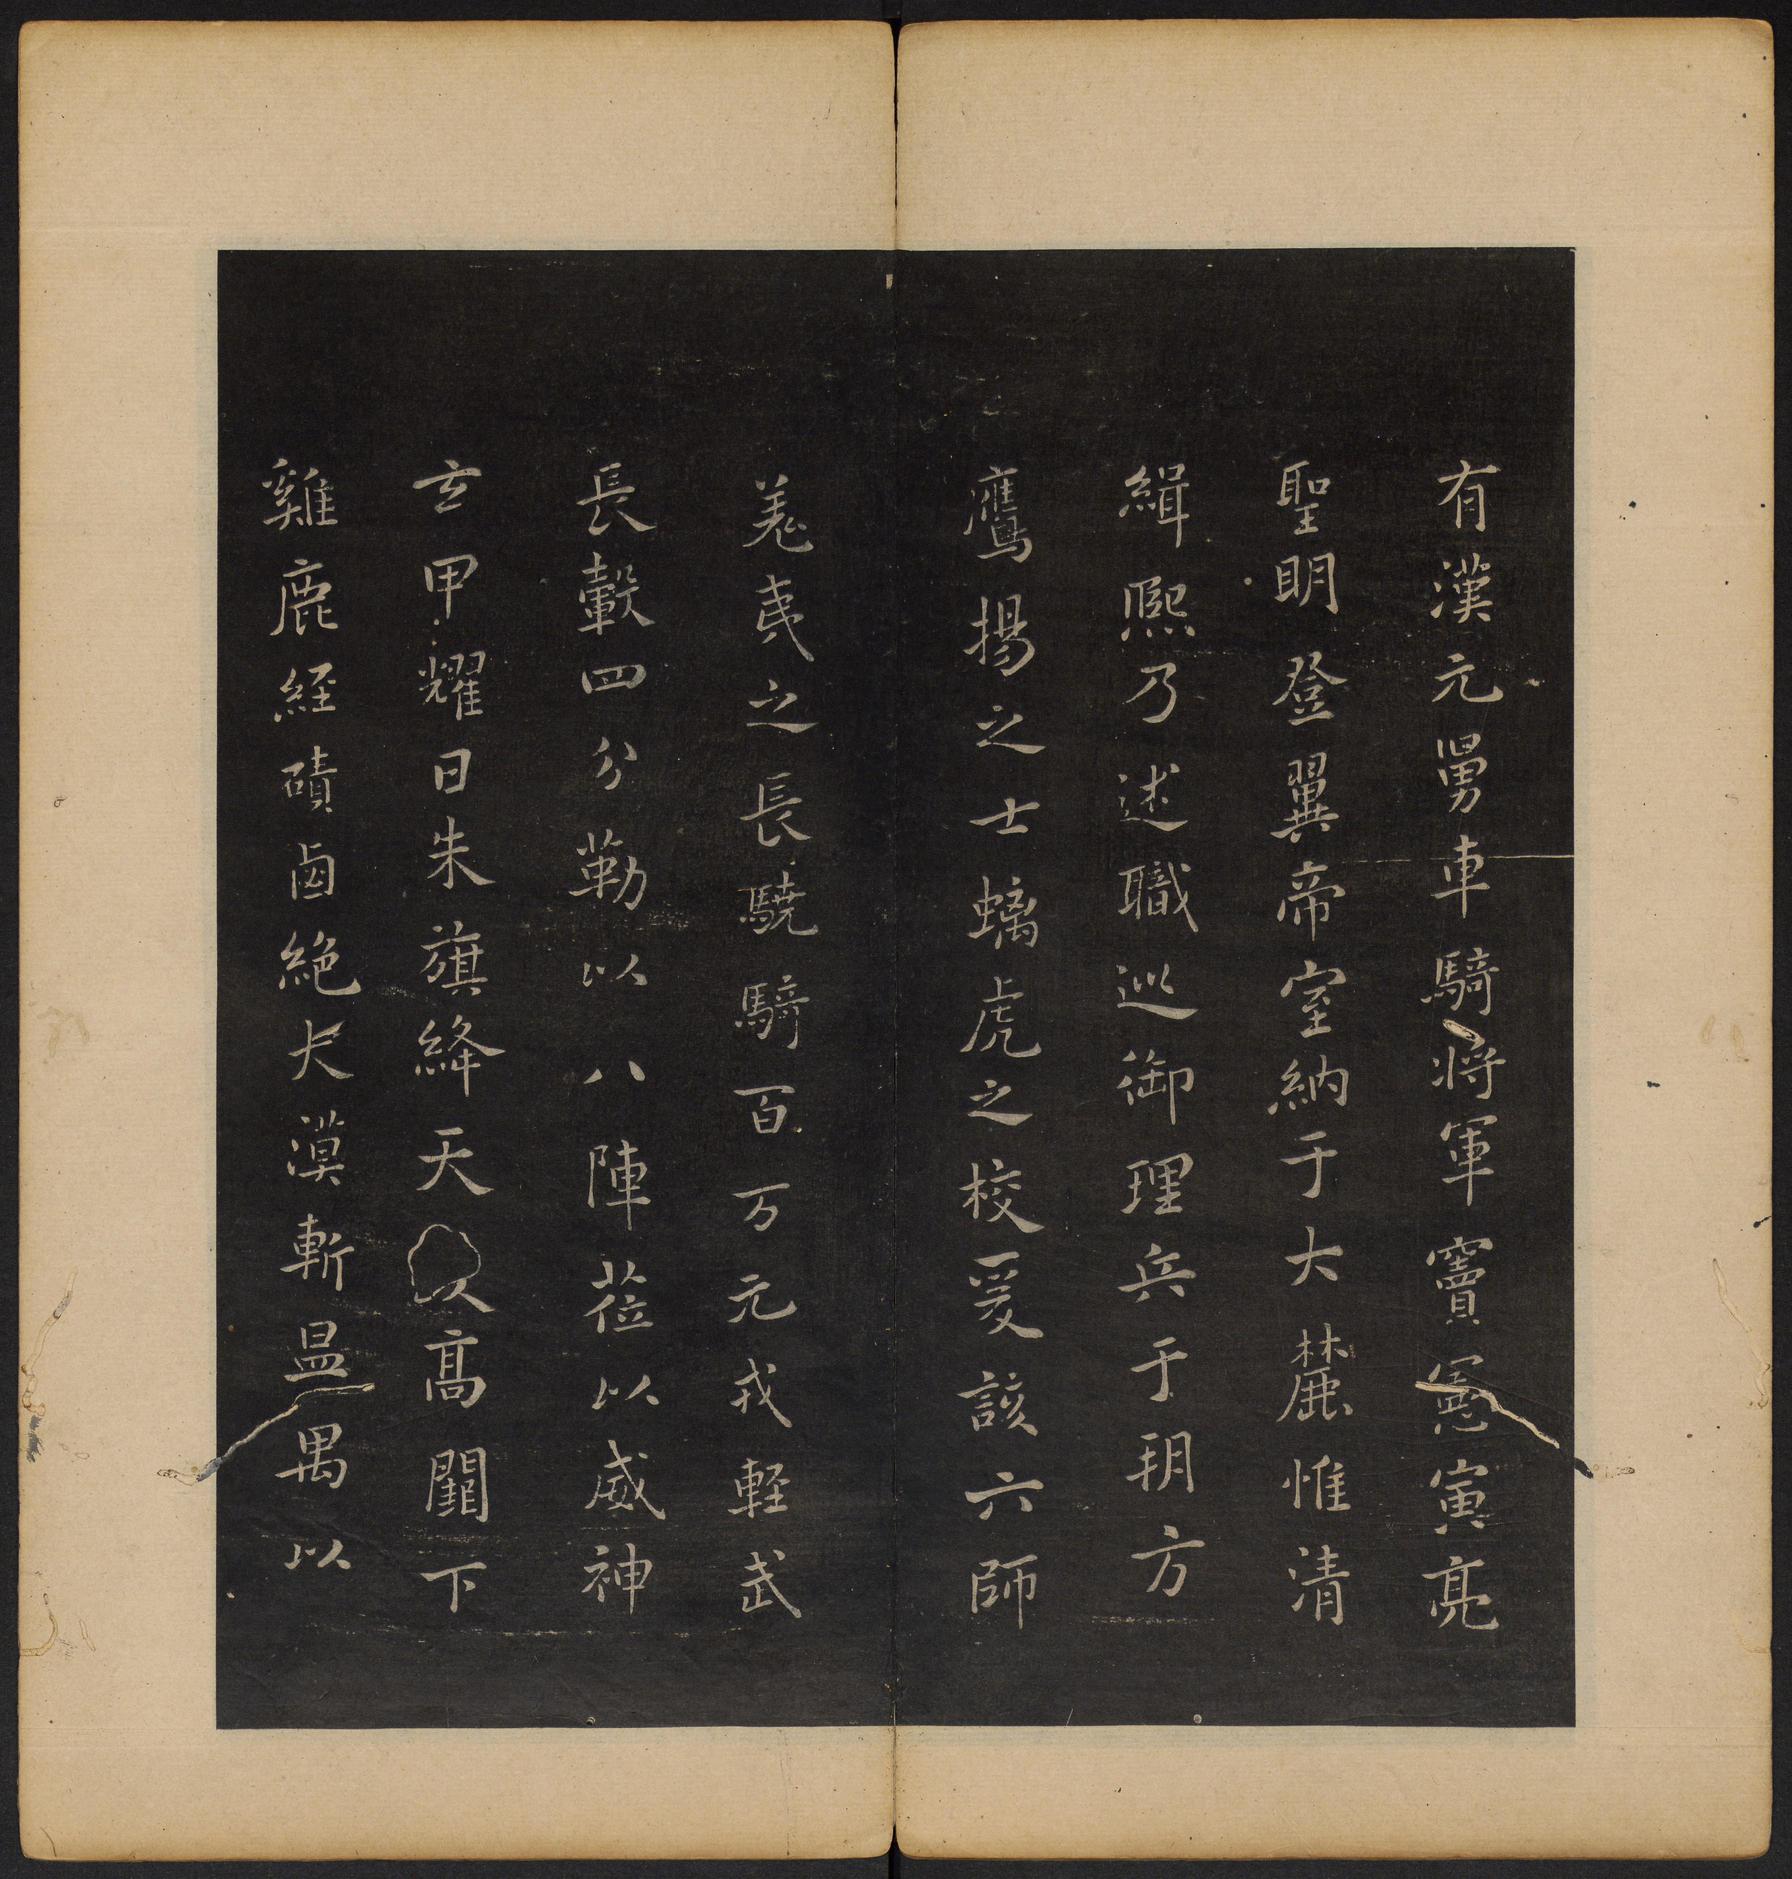 有漢元舅車騎將軍竇憲寅亮
聖明登翼帝室納于大麓惟清
緝熙乃述職巡御理兵于朔方
鷹揚之士螭虎之校爰該六師
羌夷之長驍騎百万元戎輕武
長轂四分勒以八陣蒞以威神
玄甲耀日朱旗絳天 高闕下
雞鹿經磧鹵絕大漠斬昷禺以